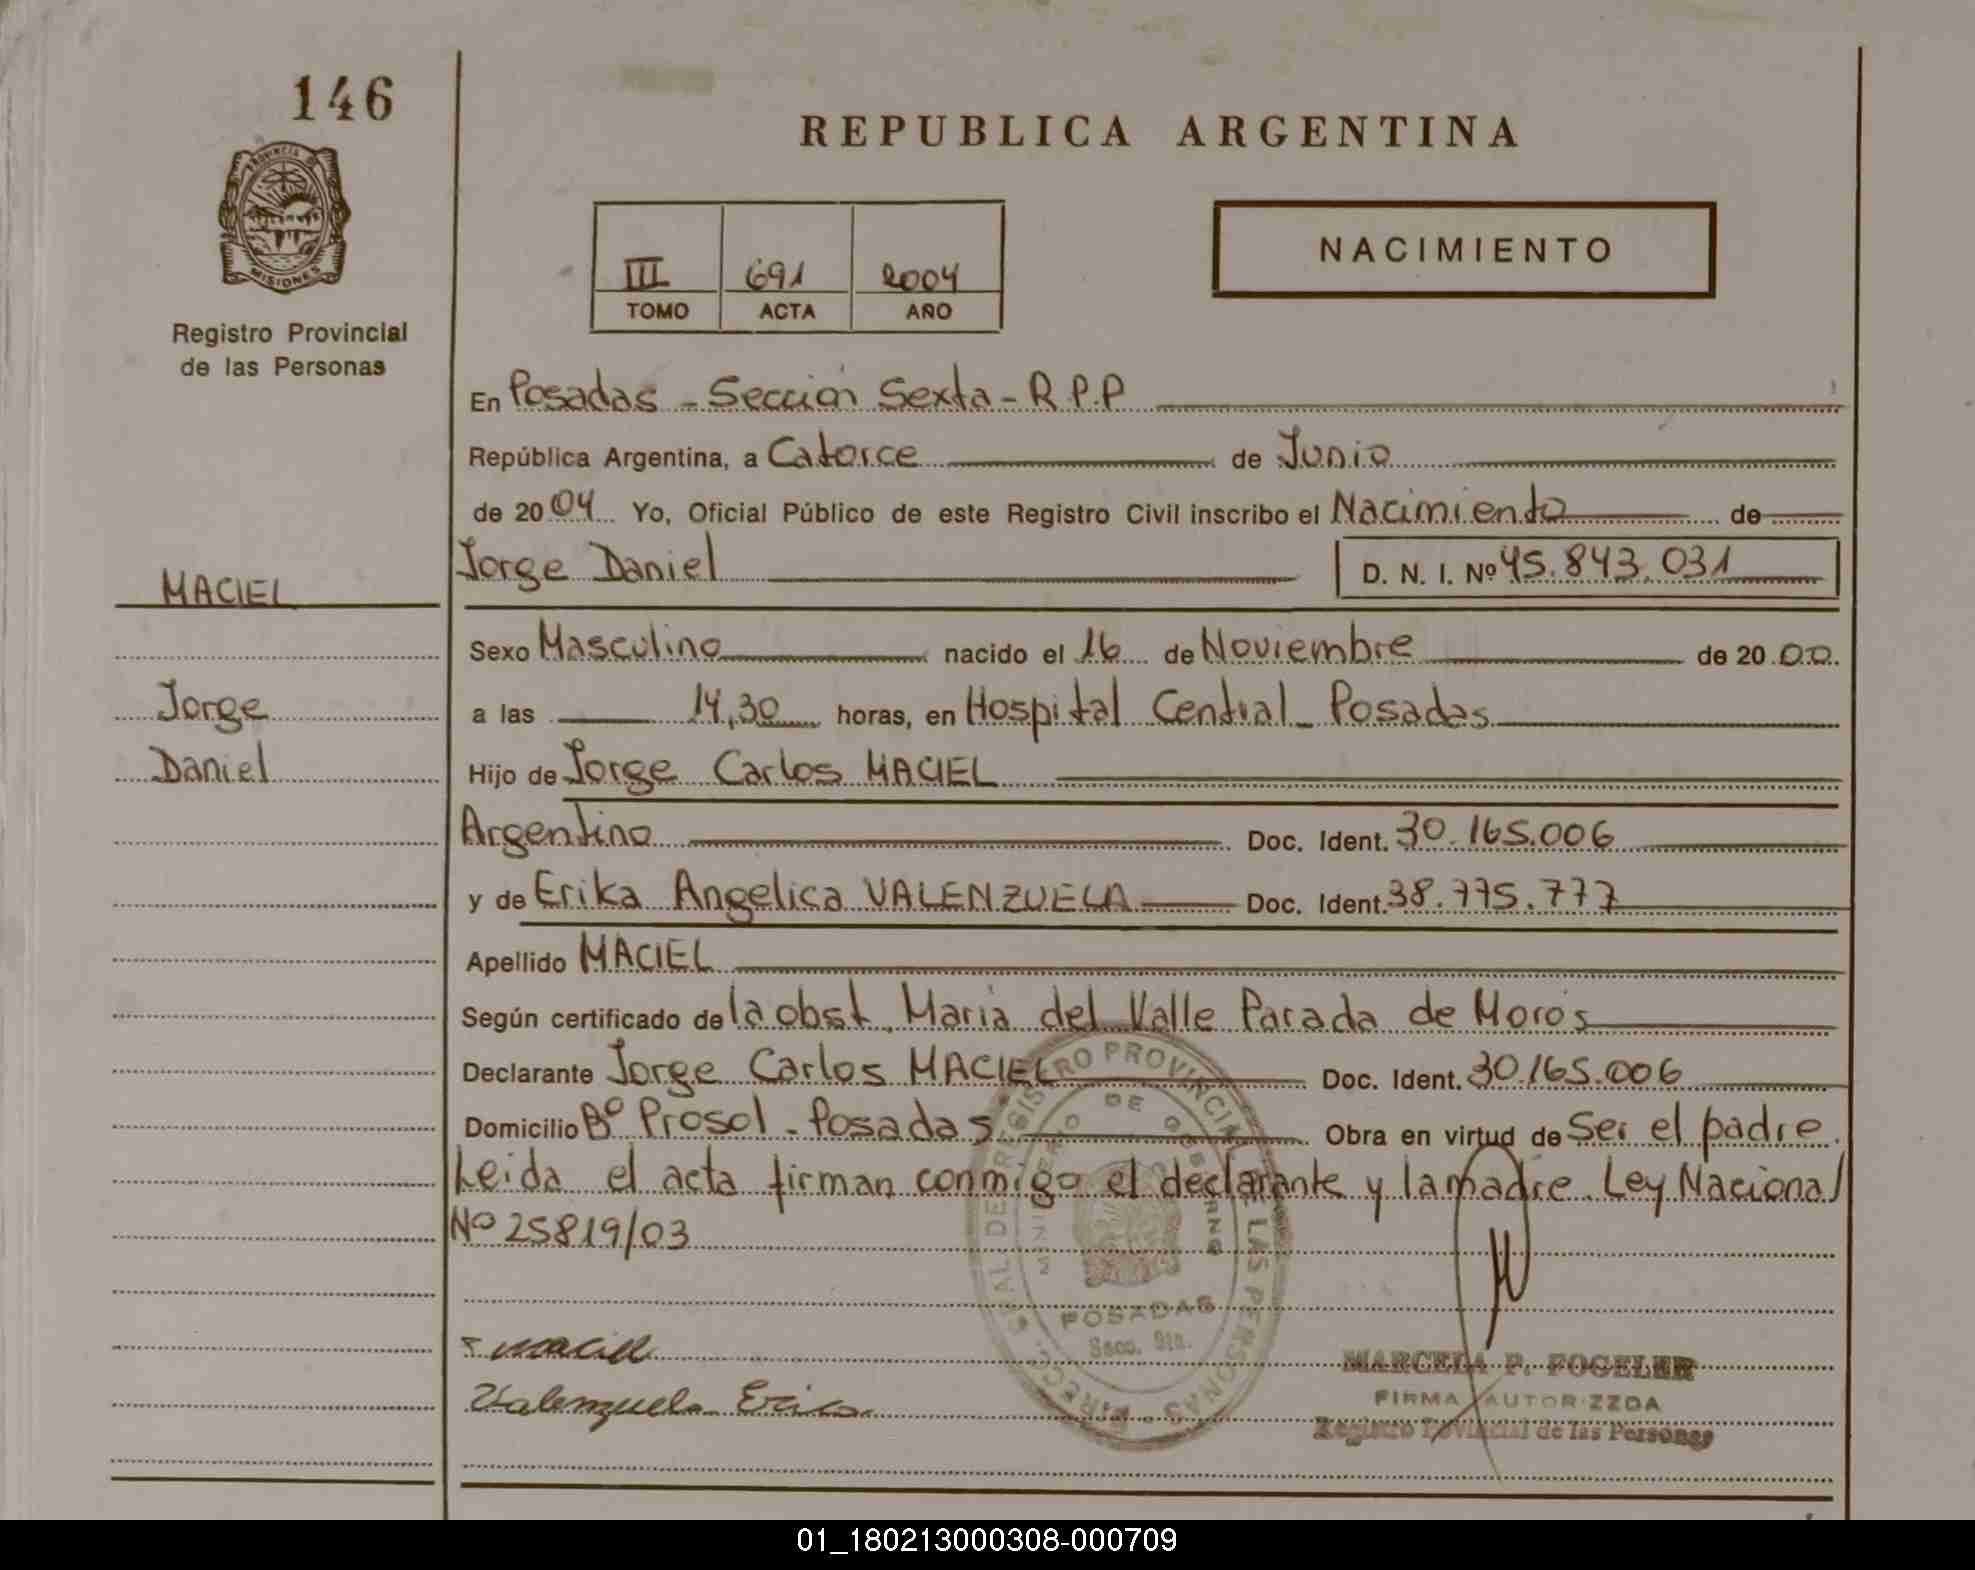 146
PROVINCIA DE
MISIONES
Registro Provincial
de las Personas
REPUBLICA ARGENTINA
III 691 2004
TOMO ACTA AÑO
NACIMIENTO
En Posadas - Sección Sexta - R.P.P
República Argentina, a Catorce de Junio
de 2004 Yo, Oficial Público de este Registro Civil inscribo el Nacimiento de
Jorge Daniel D. N. I. Nº 45.843.031
MACIEL
Jorge
Daniel
Sexo Masculino nacido el 16 de Noviembre de 2000.
a las 14,30 horas, en Hospital Central - Posadas
Hijo de Jorge Carlos MACIEL
Argentino Doc. Ident. 30.165.006
y de Erika Angelica VALENZUELA Doc. Ident. 38.775.777
Apellido MACIEL
Según certificado de la obst. Maria del Valle Parada de Moros
Declarante Jorge Carlos MACIEL Doc. Ident. 30.165.006
Domicilio Bº Prosol - Posadas Obra en virtud de Ser el padre.
Leida el acta firman conmigo el declarante y la madre. Ley Nacional
Nº 25819/03
REGISTRO PROVINCIAL DE LAS PERSONAS
MINISTERIO DE GOBIERNO
POSADAS
Secc.
maciel
Valenzuela Erica
MARCELA P. FOGELER
FIRMA AUTORIZZDA
Registro Provincial de las Personas
01_180213000308-000709